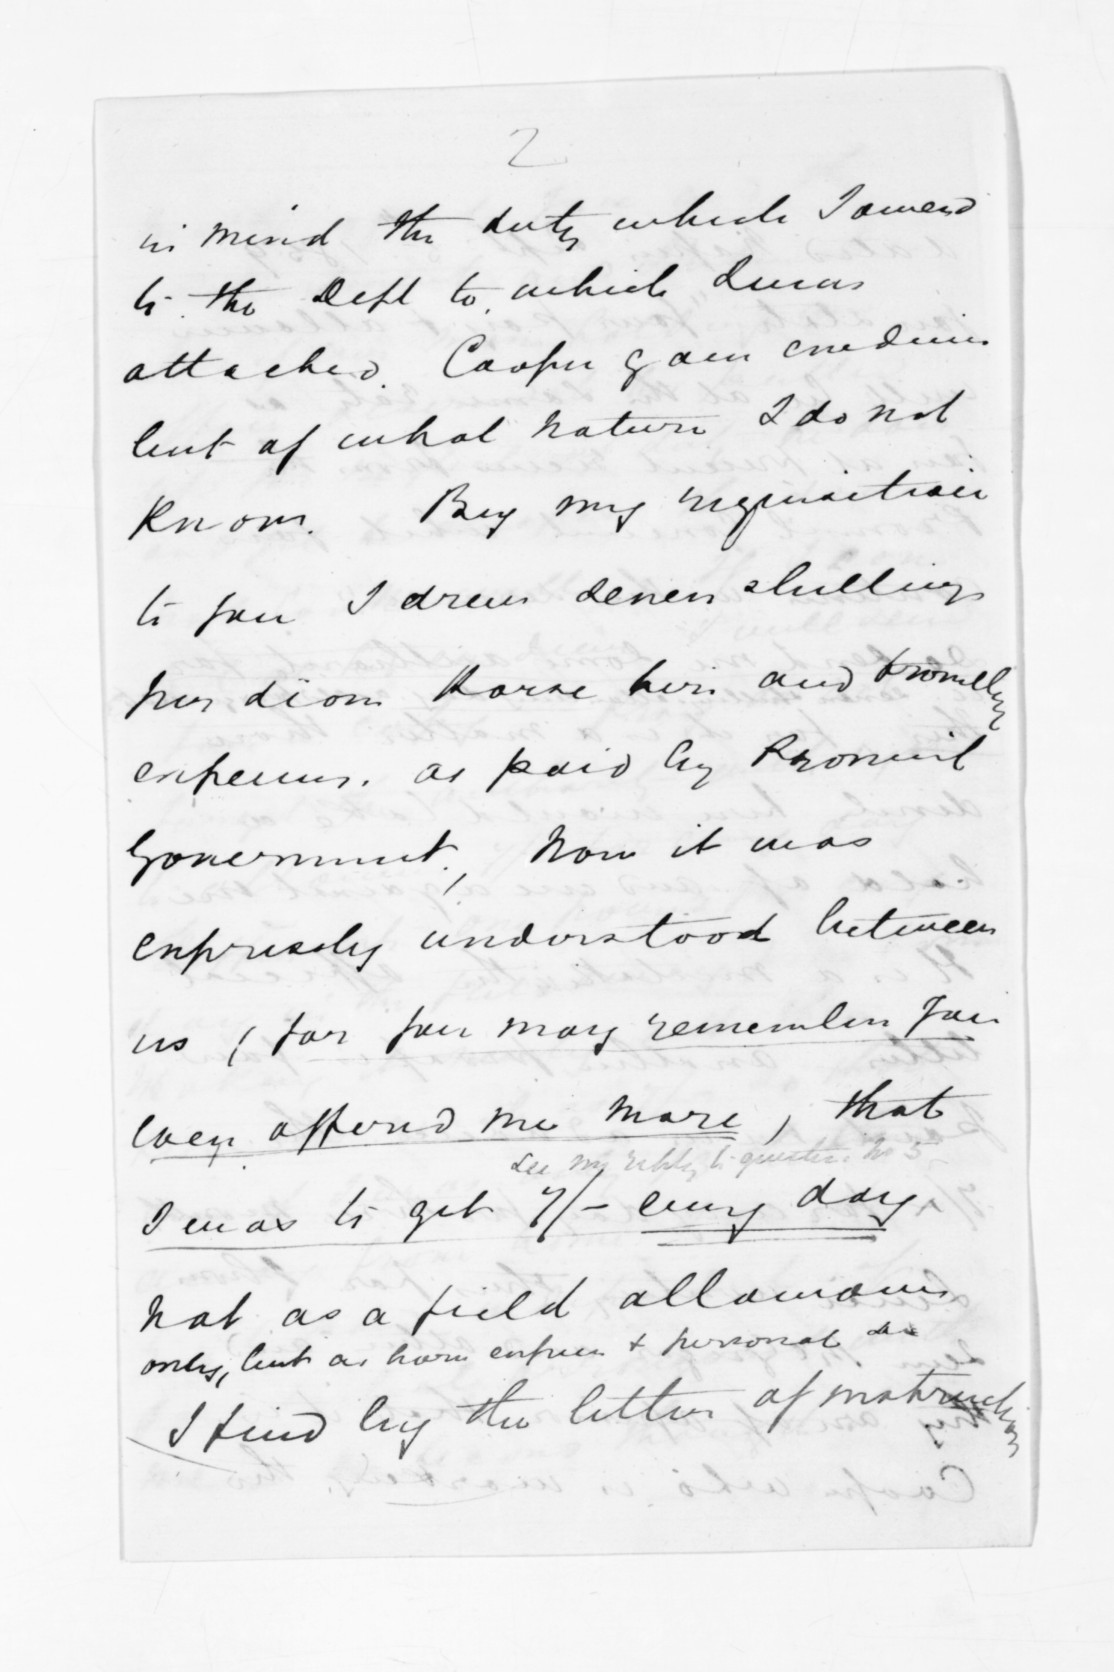 2
in mind the duty which I owed
to the Dept to which I was
attached. Cooper gave evidence
but of what nature I do not
Know. By my requisition
to you I drew seven shillings
per diem Horse hire and travelling
expenses. as paid by Provincial
Government, Now it was
expressly understood between
us, (for you may remember You
even offered me more, that
See my reply to question No 5
I was to get 7/- every day
not as a field allowance
only, but as horse expenses & personal do
I find by the letter of instructions